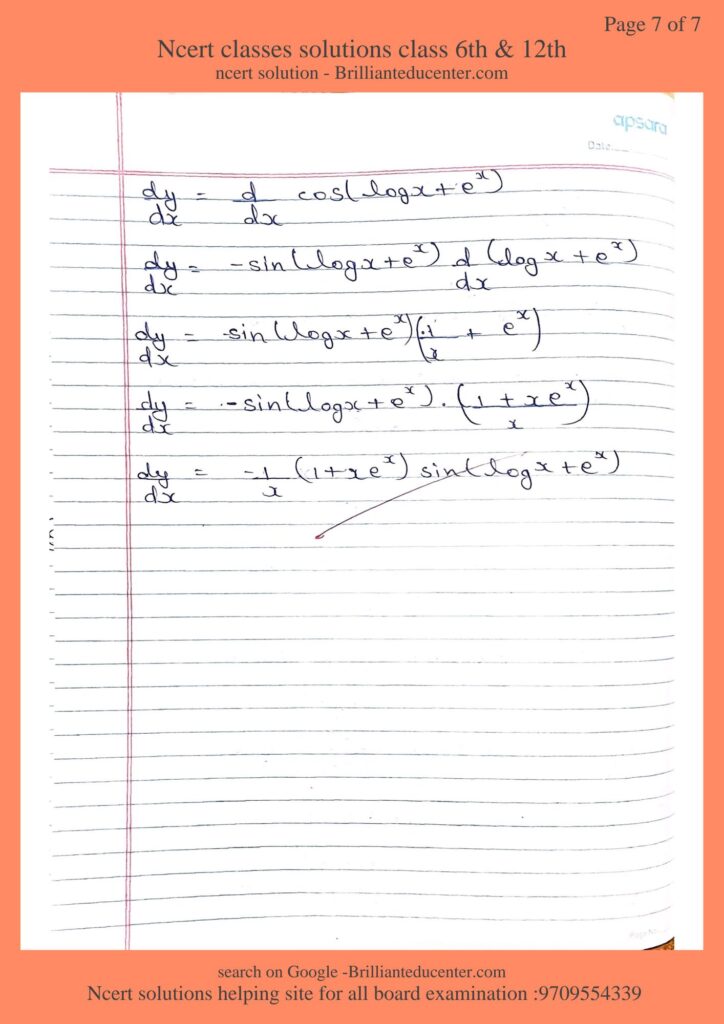 Page 7 of 7
Ncert classes solutions class 6th & 12th
ncert solution - Brillianteducenter.com
apsara
Date
dy/dx = d/dx cos(logx + e^x)
dy/dx = -sin(logx + e^x) d/dx (logx + e^x)
dy/dx = -sin(logx + e^x)(1/x + e^x)
dy/dx = -sin(logx + e^x) . (1 + xe^x / x)
dy/dx = -1/x (1 + xe^x) sin(logx + e^x)
Page No.
search on Google -Brillianteducenter.com
Ncert solutions helping site for all board examination :9709554339